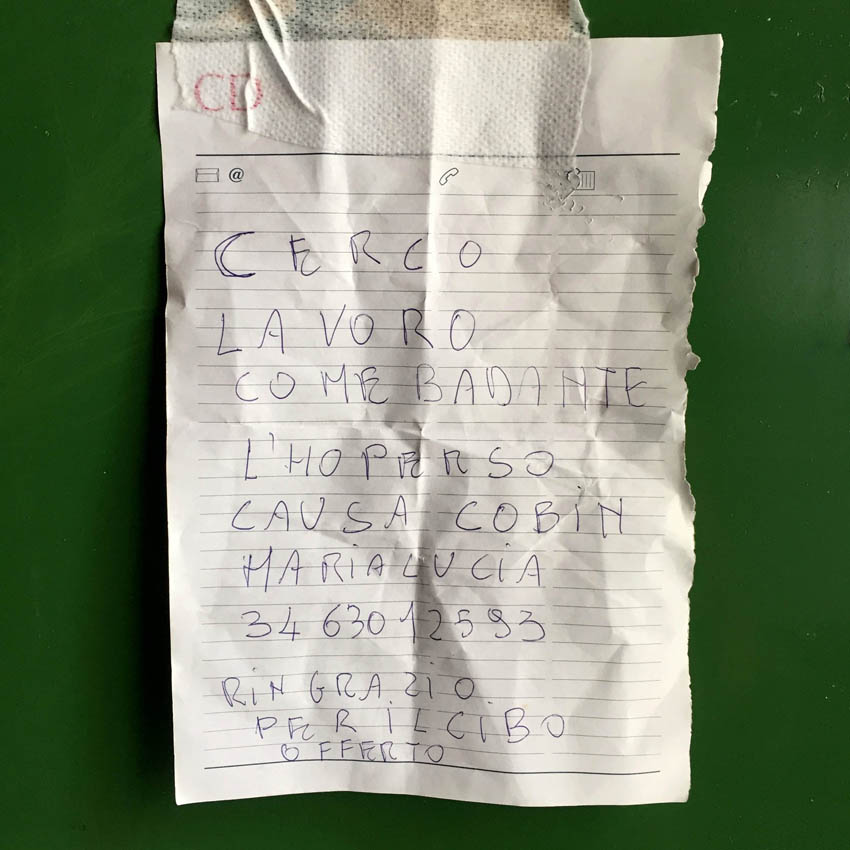 CD
@
CERCO
LAVORO
COME BADANTE
L'HO PERSO
CAUSA COBIN
MARIA LUCIA
34 630 12593
RINGRAZIO
PER IL CIBO
OFFERTO